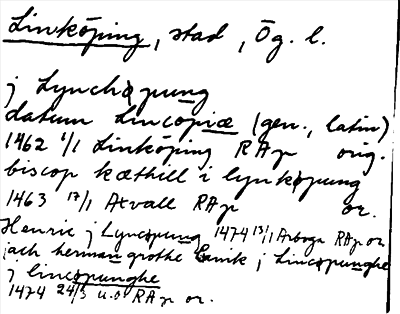 Linköping, stad, Ög. l.
j Lynchøpung
datum Lincopiæ (gen., latin)
1462 1/1 Linköping RAp orig.
biscop kæthill i lynkøpung
1463 17/1 Axvall RAp or.
Henric j Lyncøpung 1474 13/1 Arboga RAp or
jach herman grothe j Lincøpunghe
j lincøpunghe
1474 24/3 u.o RAp or.